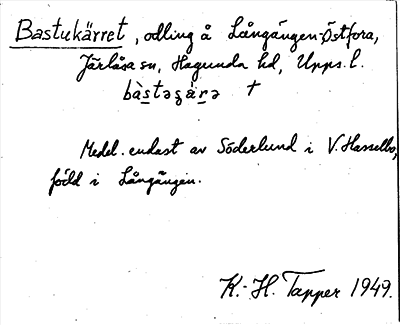 Bastukärret, odling å Långängen Östfora,
Järlåsa sn, Hagunda hd, Upps. l.
bàstəʂárə †
Medel. endast av Söderlund i V. Hasselbo,
född i Långängen.
K.-H. Tapper 1949.